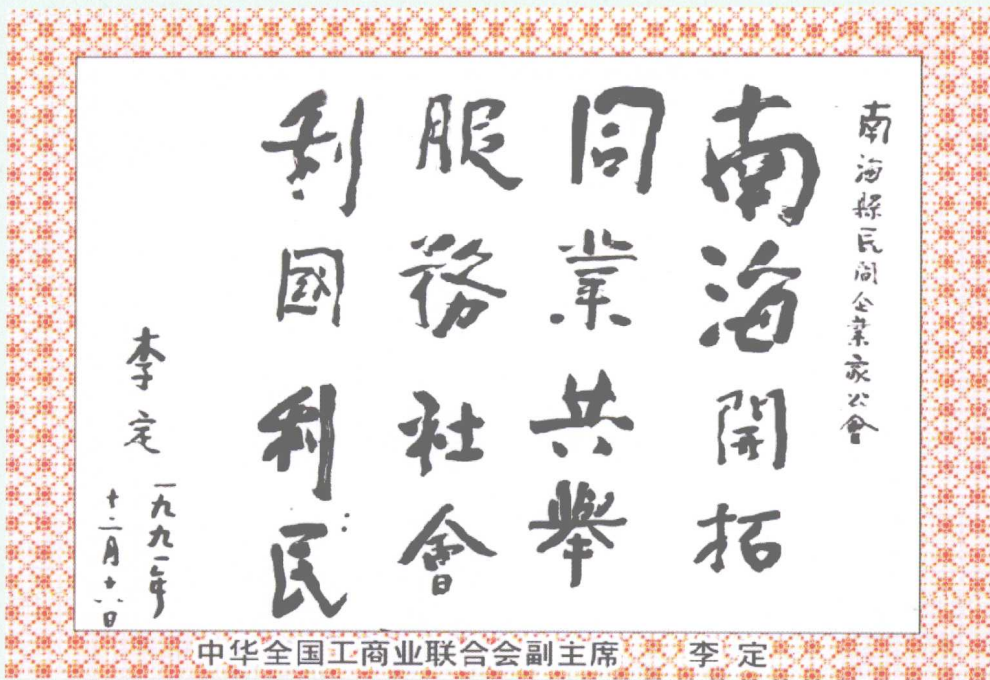 南海縣民间企業家公會
南海開拓
同業共舉
服務社會
利國利民
李定
一九九一年
十二月十六日
中华全国工商业联合会副主席 李定